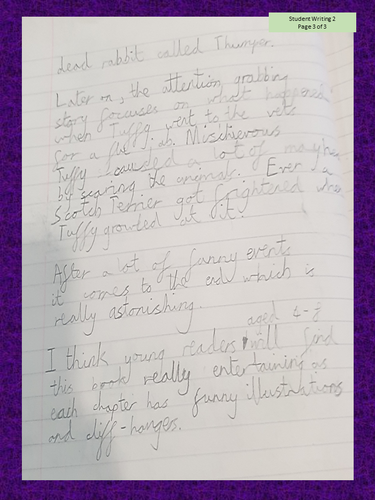 Student Writing 2
Page 3 of 3
dead rabbit called Thumper.
Later on, the attention grabbing
story focuses on what happened
when Tuffy went to the vets
for a flu jab. Mischievous
Tuffy caused a lot of mayhem
by scaring the animals. Even a
Scotch Terrier got frightened when
Tuffy growled at it.
After a lot of funny events
it comes to the end which is
really astonishing.
aged 6-8
I think young readers will find
this book really entertaining as
each chapter has funny illustrations
and cliff-hanges.